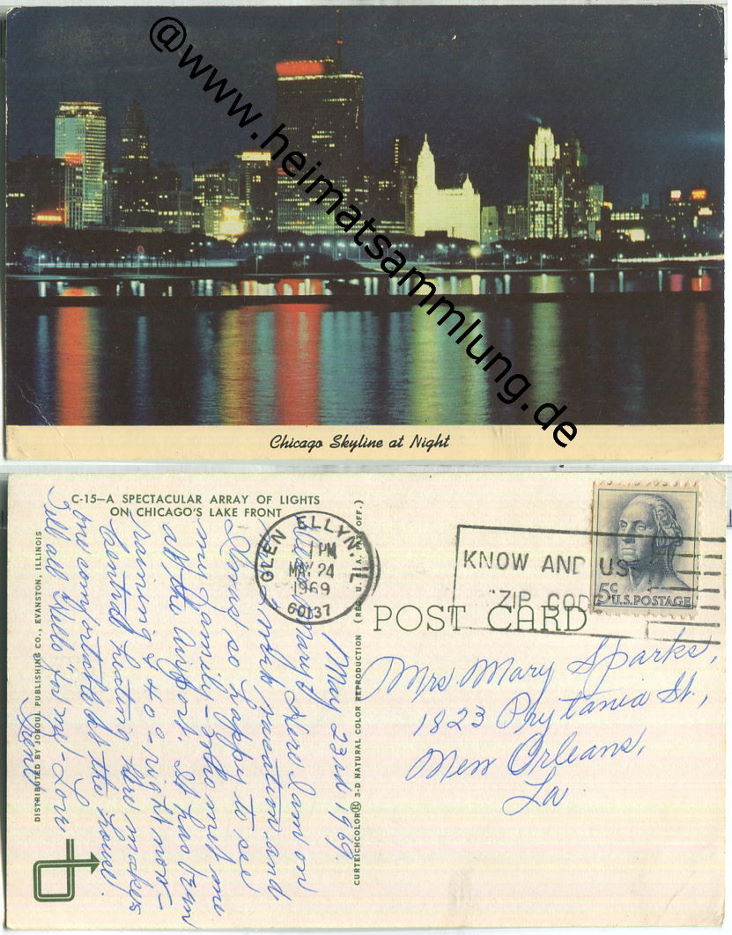 @www.heimatsammlung.de
Chicago Skyline at Night
C-15—A SPECTACULAR ARRAY OF LIGHTS
ON CHICAGO'S LAKE FRONT
DISTRIBUTED BY JOBOUL PUBLISHING CO., EVANSTON, ILLINOIS
CURTEICHCOLOR® 3-D NATURAL COLOR REPRODUCTION (REG. U.S.A. PAT. OFF.)
GLEN ELLYN, IL
1 PM
MAY 24
1969
60137
KNOW AND US
ZIP CODE
5c U.S. POSTAGE
POST CARD
May 23rd 1969
Mary Here I am on
vacation and
so happy to see
my family - who met me
at the airport. It has been
raining & 40 - right now -
Central heating makes
me comfortable at the home.
Tell all "Hello" for me - Love
Mrs. Mary Sparks,
1823 Prytania St.,
New Orleans,
La.